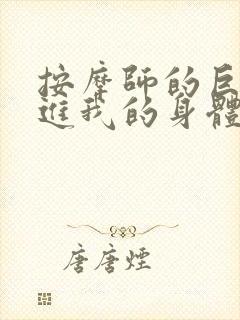 按摩師的巨
進我的身體
唐唐煙